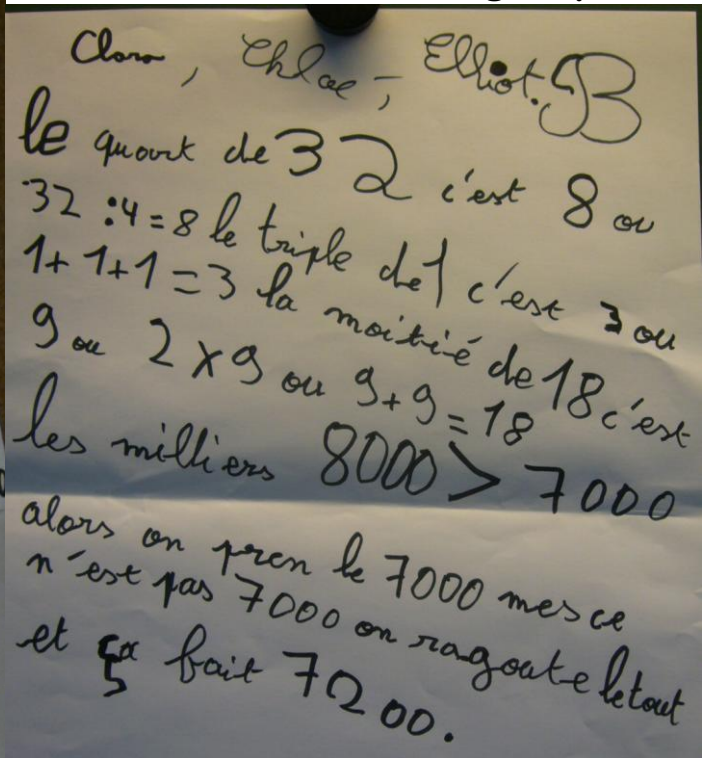 Clara, Chloe, Elliot. B
le quart de 32 c'est 8 ou
32 :4=8 le triple de 1 c'est 3 ou
1+1+1=3 la moitié de 18 c'est
9 ou 2×9 ou 9+9=18
les milliers 8000 > 7000
alors on pren le 7000 mes ce
n'est pas 7000 on ragoute le tout
et ça fait 7200.